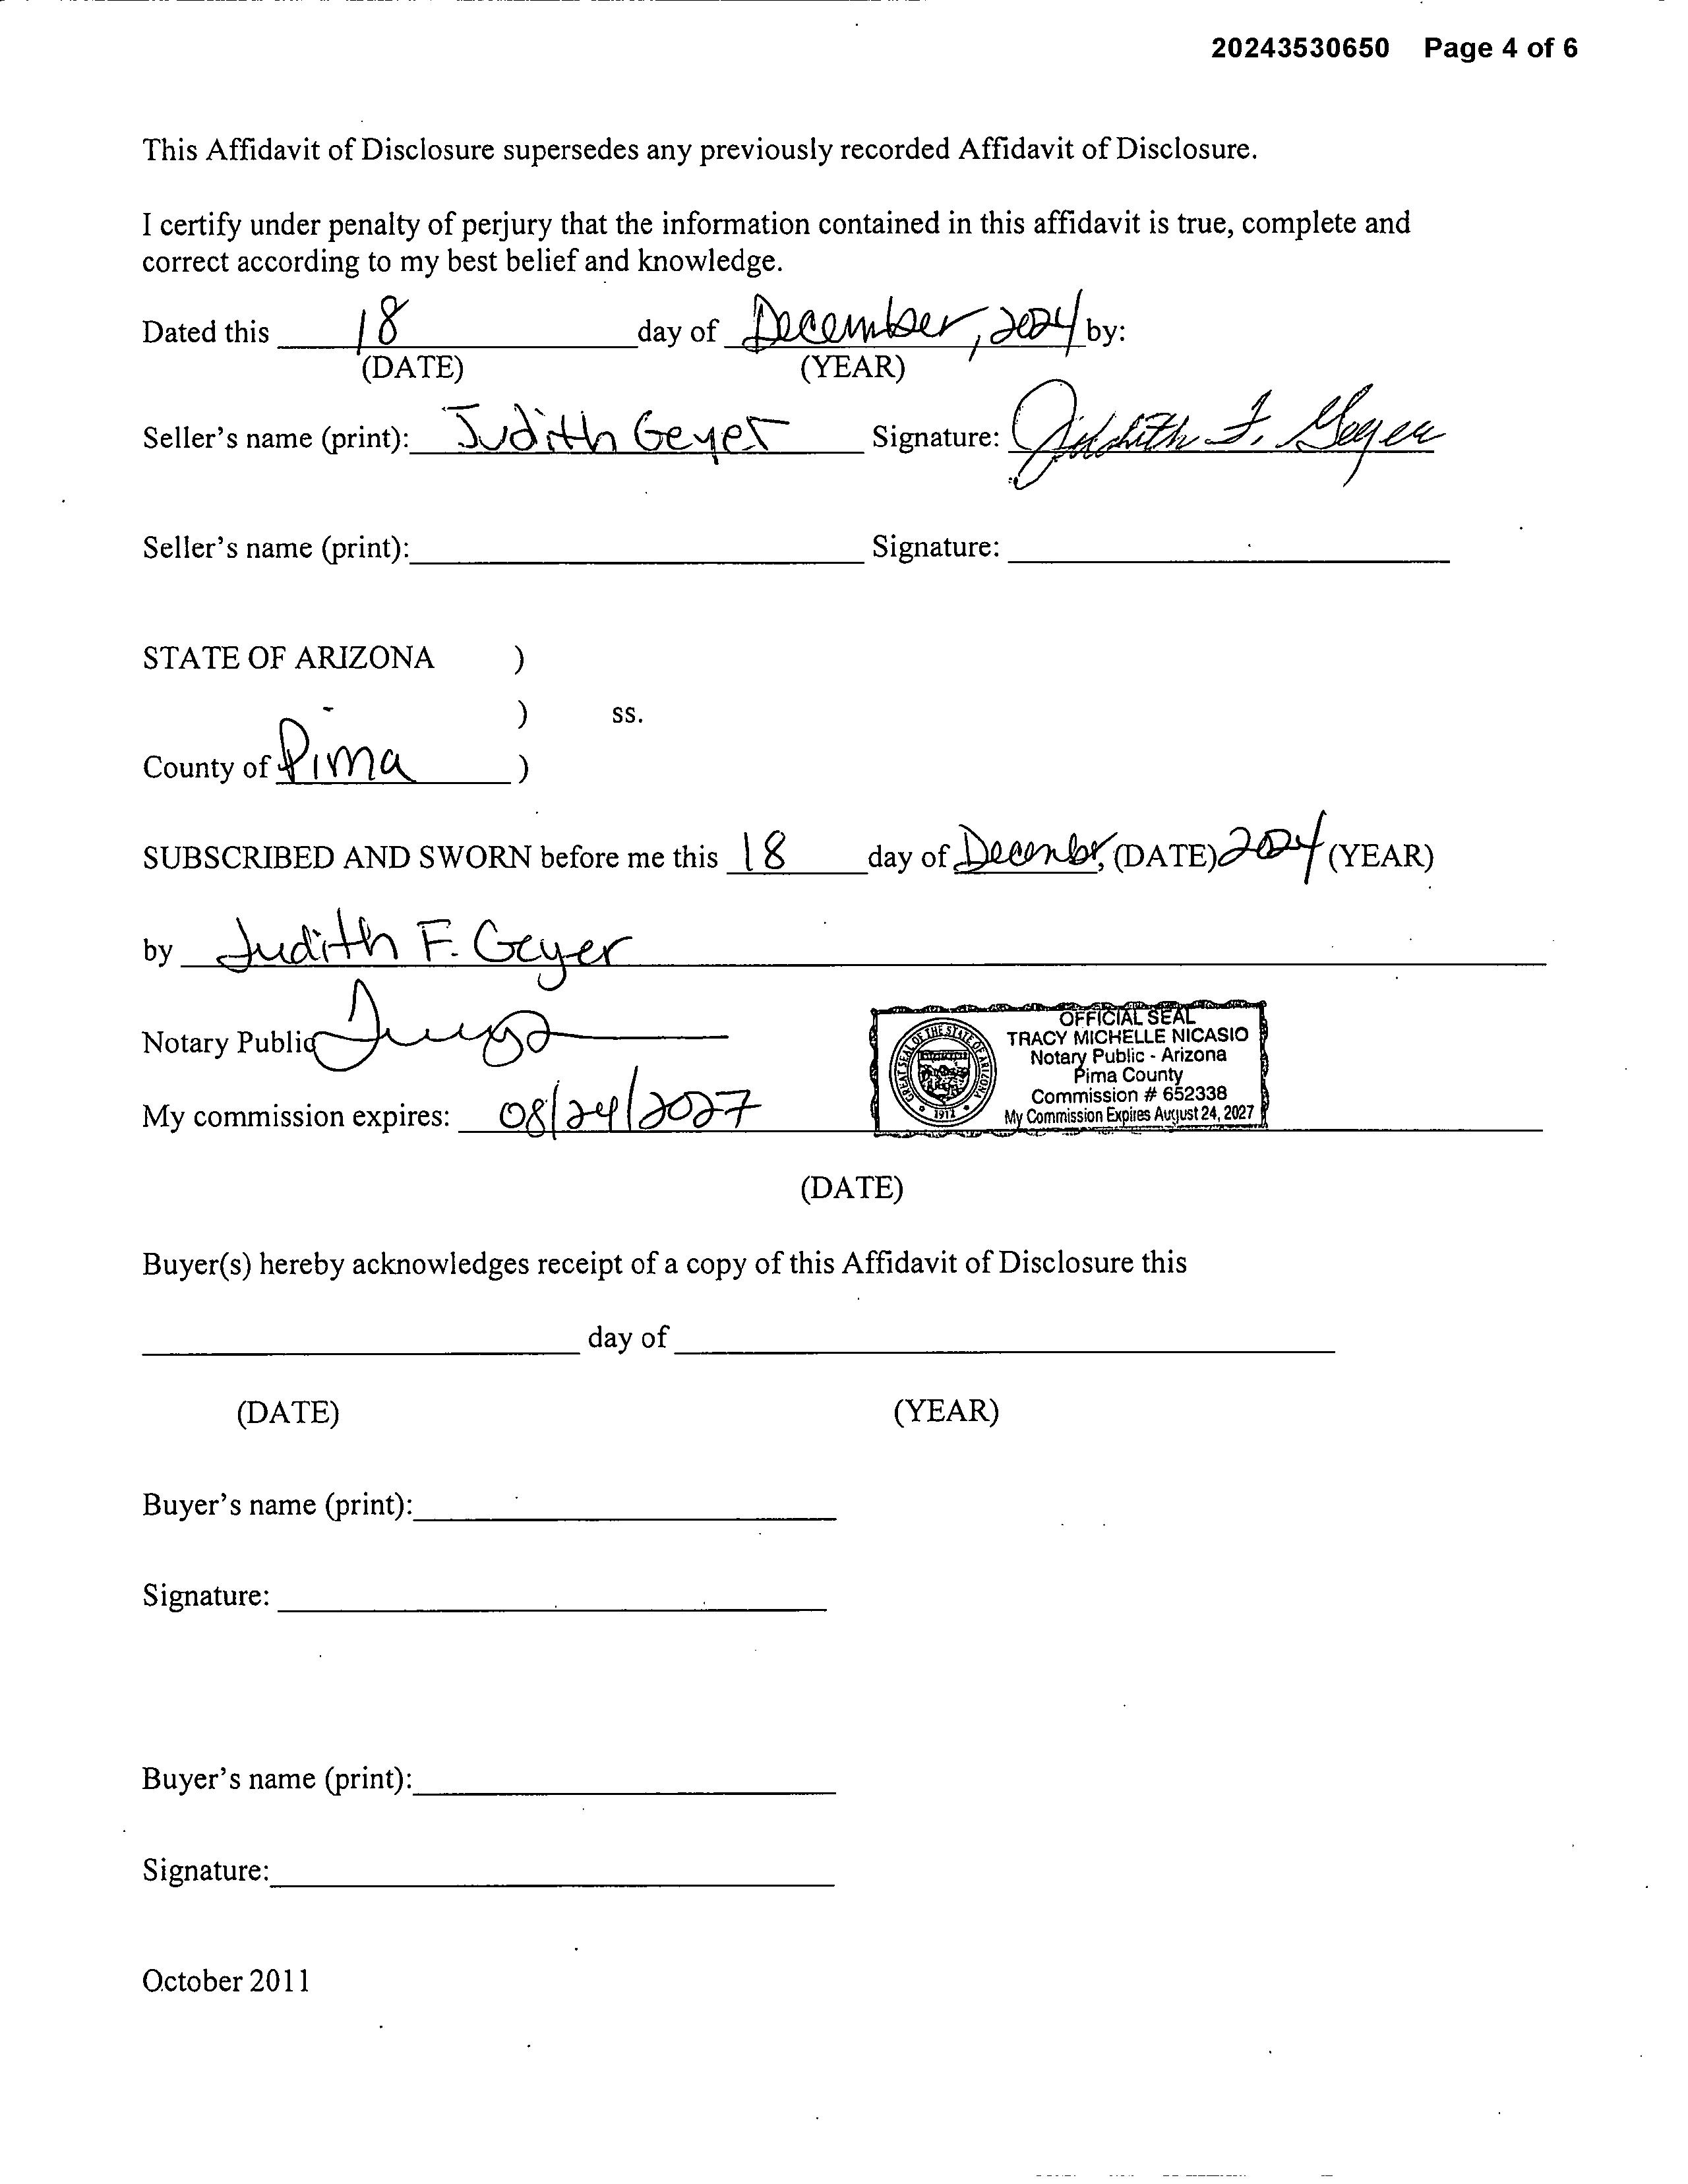 20243530650 Page 4 of 6
This Affidavit of Disclosure supersedes any previously recorded Affidavit of Disclosure.
I certify under penalty of perjury that the information contained in this affidavit is true, complete and
correct according to my best belief and knowledge.
Dated this 18 day of December, 2024 by:
(DATE) (YEAR)
Seller's name (print): Judith Geyer Signature: Judith F. Geyer
Seller's name (print): Signature:
STATE OF ARIZONA )
) ss.
County of Pima )
SUBSCRIBED AND SWORN before me this 18 day of Decembr, (DATE) 2024 (YEAR)
by Judith F. Geyer
Notary Public
My commission expires: 08/24/2027
OFFICIAL SEAL
TRACY MICHELLE NICASIO
Notary Public - Arizona
Pima County
Commission # 652338
My Commission Expires August 24, 2027
GREAT SEAL OF THE STATE OF ARIZONA
1912
(DATE)
Buyer(s) hereby acknowledges receipt of a copy of this Affidavit of Disclosure this
day of
(DATE) (YEAR)
Buyer's name (print):
Signature:
Buyer's name (print):
Signature:
October 2011